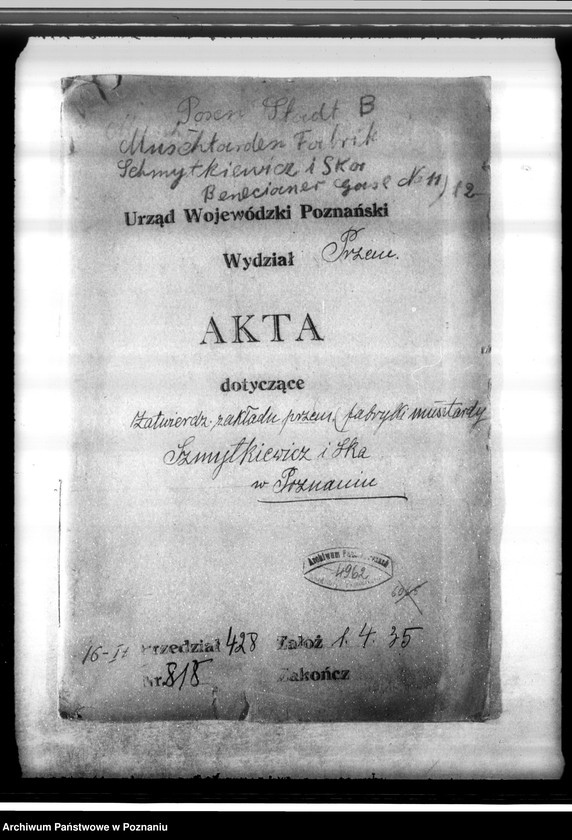 Posen Stadt B
Muschtarden Fabrik
Schmytkiewicz i Ska
Benecianer Gase No 11/12
Urząd Wojewódzki Poznański
Wydział Przem.
AKTA
dotyczące
zatwierdz. zakładu przem. (fabryki musztardy
Szmytkiewicz i Ska
w Poznaniu
Archiwum
4962
16-II Przedział 428 Założ 1. 4. 35
Nr. 818 Zakończ
Archiwum Państwowe w Poznaniu